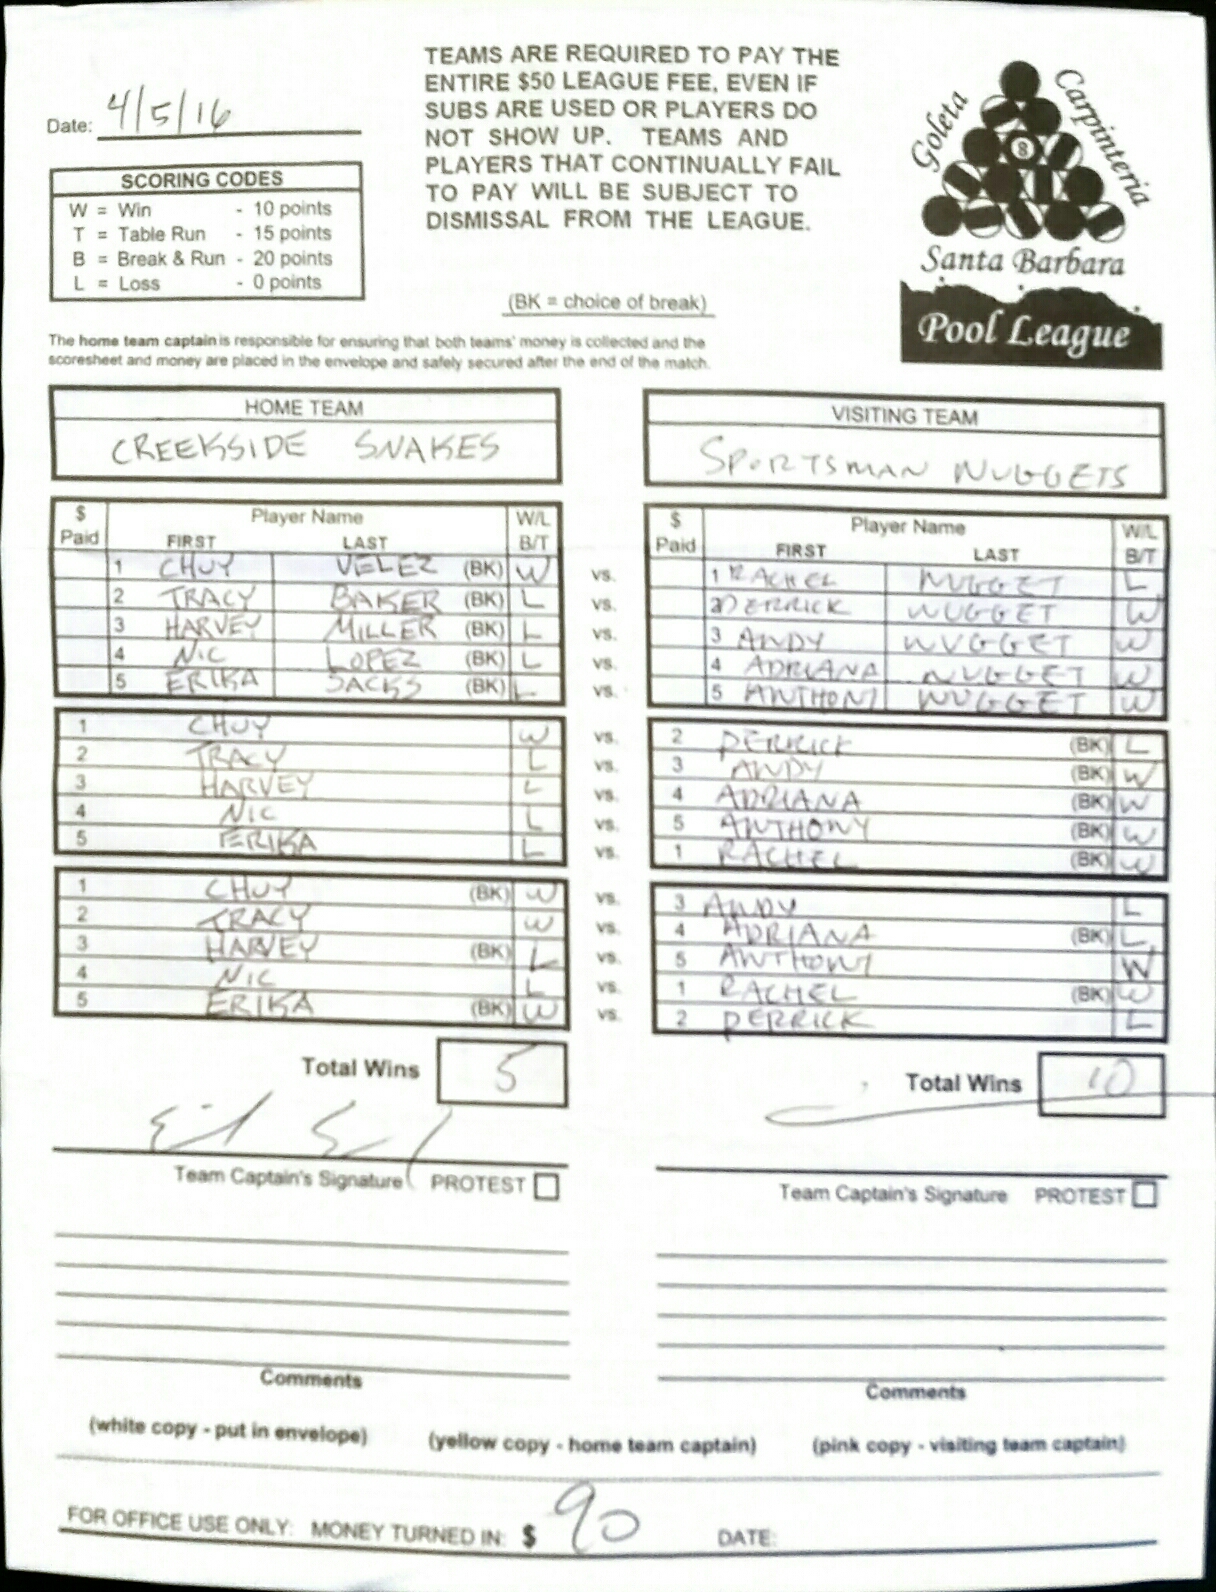 Date: 4/5/16
TEAMS ARE REQUIRED TO PAY THE
ENTIRE $50 LEAGUE FEE, EVEN IF
SUBS ARE USED OR PLAYERS DO
NOT SHOW UP. TEAMS AND
PLAYERS THAT CONTINUALLY FAIL
TO PAY WILL BE SUBJECT TO
DISMISSAL FROM THE LEAGUE.
(BK = choice of break)
Goleta
Carpinteria
8
Santa Barbara
Pool League
SCORING CODES
W = Win - 10 points
T = Table Run - 15 points
B = Break & Run - 20 points
L = Loss - 0 points
The home team captain is responsible for ensuring that both teams' money is collected and the
scoresheet and money are placed in the envelope and safely secured after the end of the match.
HOME TEAM
CREEKSIDE SNAKES
VISITING TEAM
SPORTSMAN NUGGETS
$ Paid Player Name W/L
FIRST LAST B/T
$ Paid Player Name W/L
FIRST LAST B/T
1 CHUY VELEZ (BK) W vs. 1 RACHEL NUGGET L
2 TRACY BAKER (BK) L vs. 2 DERRICK NUGGET W
3 HARVEY MILLER (BK) L vs. 3 ANDY NUGGET W
4 NIC LOPEZ (BK) L vs. 4 ADRIANA NUGGET W
5 ERIKA SACKS (BK) L vs. 5 ANTHONY NUGGET W
1 CHUY W vs. 2 DERRICK (BK) L
2 TRACY L vs. 3 ANDY (BK) W
3 HARVEY L vs. 4 ADRIANA (BK) W
4 NIC L vs. 5 ANTHONY (BK) W
5 ERIKA L vs. 1 RACHEL (BK) W
1 CHUY (BK) W vs. 3 ANDY L
2 TRACY W vs. 4 ADRIANA (BK) L
3 HARVEY (BK) L vs. 5 ANTHONY W
4 NIC L vs. 1 RACHEL (BK) W
5 ERIKA (BK) W vs. 2 DERRICK L
Total Wins 5
Total Wins 10
Team Captain's Signature PROTEST
Team Captain's Signature PROTEST
Comments
Comments
(white copy - put in envelope) (yellow copy - home team captain) (pink copy - visiting team captain)
FOR OFFICE USE ONLY: MONEY TURNED IN: $ 90 DATE: